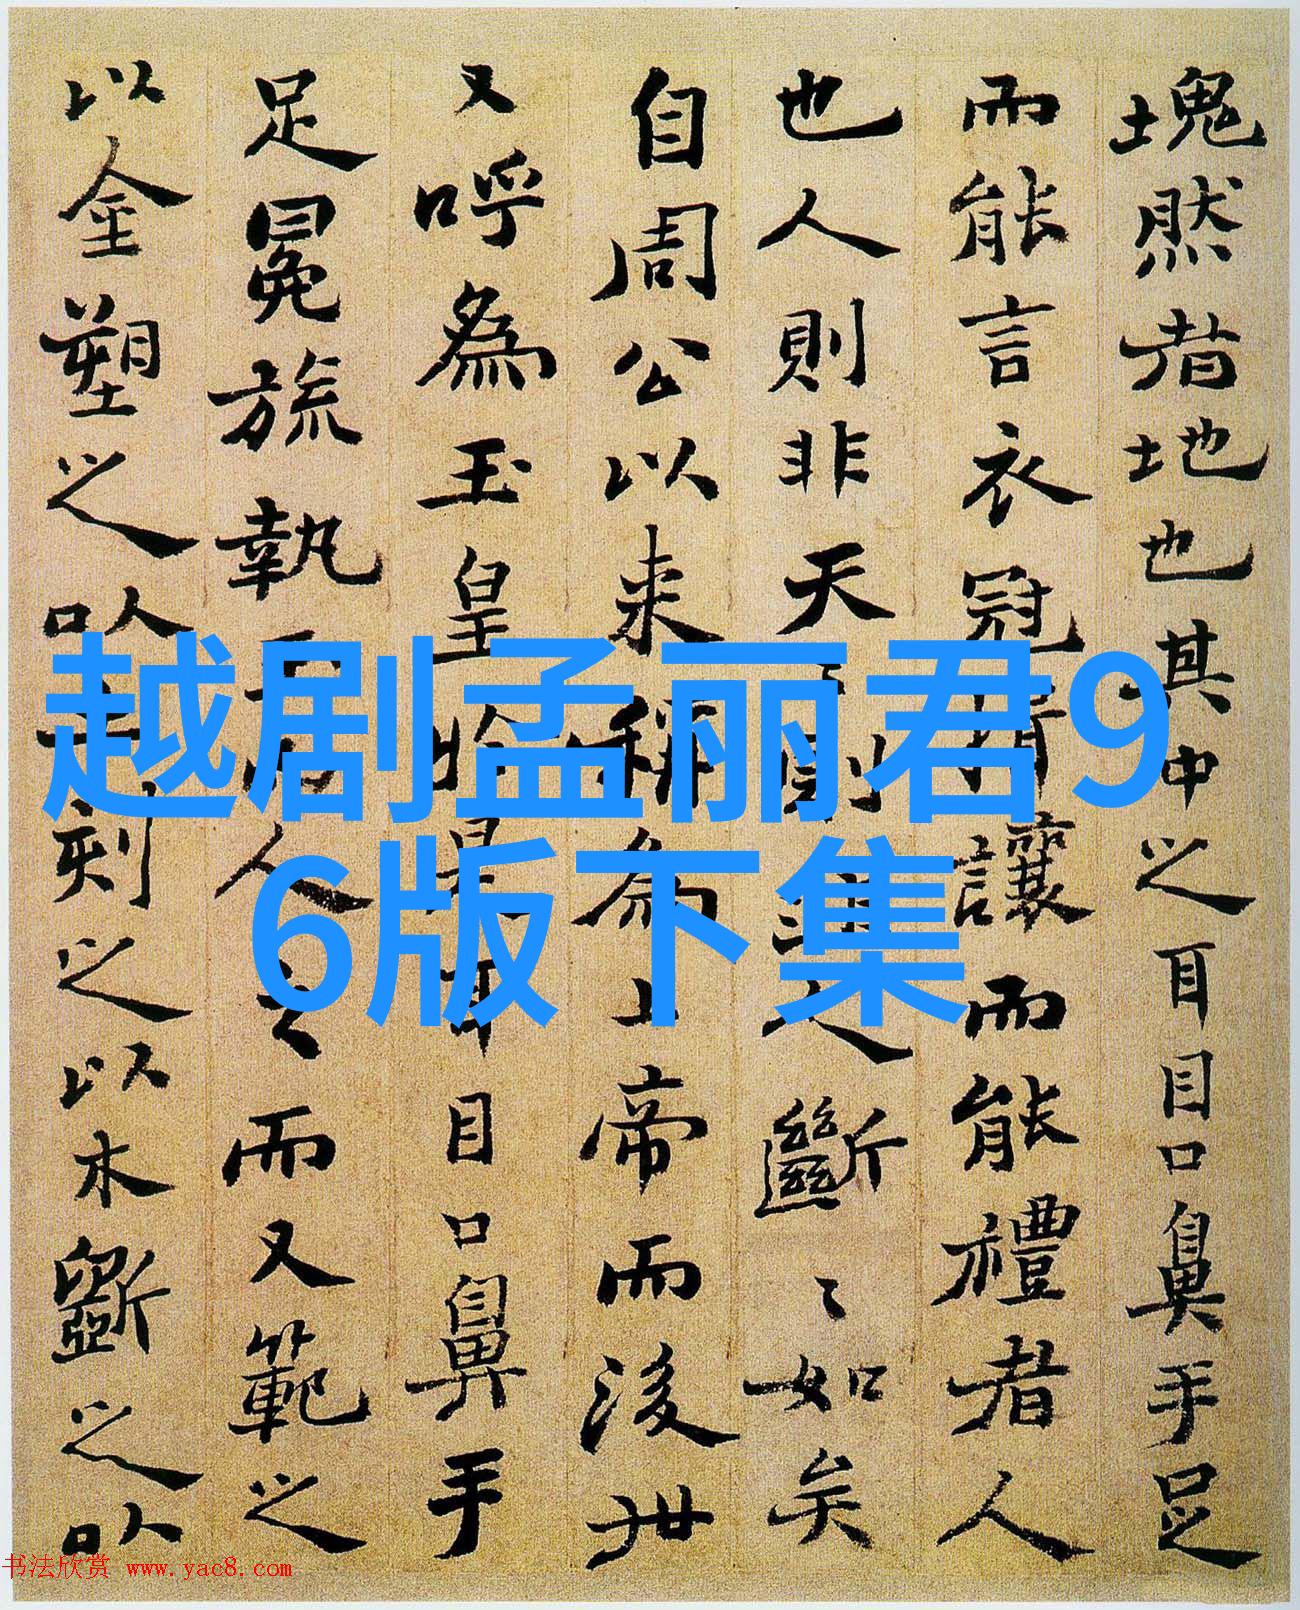 塊然者地也其中之耳目口鼻手足
而能言衣冠揖讓而能禮者人
也人則非天〻則非人斷〻如矣
自周公以来稱為上帝而後世
又呼為玉皇於是耳目口鼻手
足冕旒執玉而人之而又範之
以金塑之以土刻之以木斲之以
越剧孟丽君9
6版下集
书法欣赏 www.yac8.com